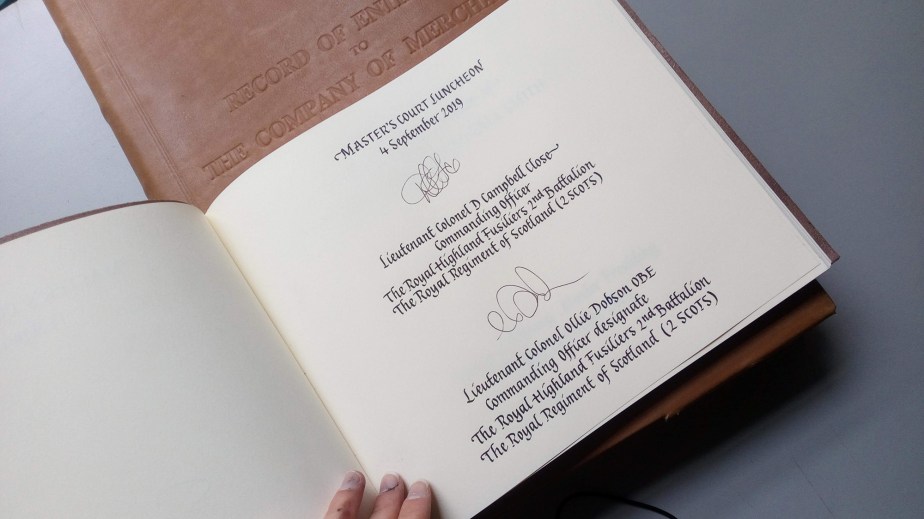 RECORD OF
TO
THE COMPANY OF
MASTER'S COURT LUNCHEON
4 September 2019
Lieutenant Colonel D Campbell Close
Commanding Officer
The Royal Highland Fusiliers 2nd Battalion
The Royal Regiment of Scotland (2 SCOTS)
Lieutenant Colonel Ollie Dobson OBE
Commanding Officer designate
The Royal Highland Fusiliers 2nd Battalion
The Royal Regiment of Scotland (2 SCOTS)